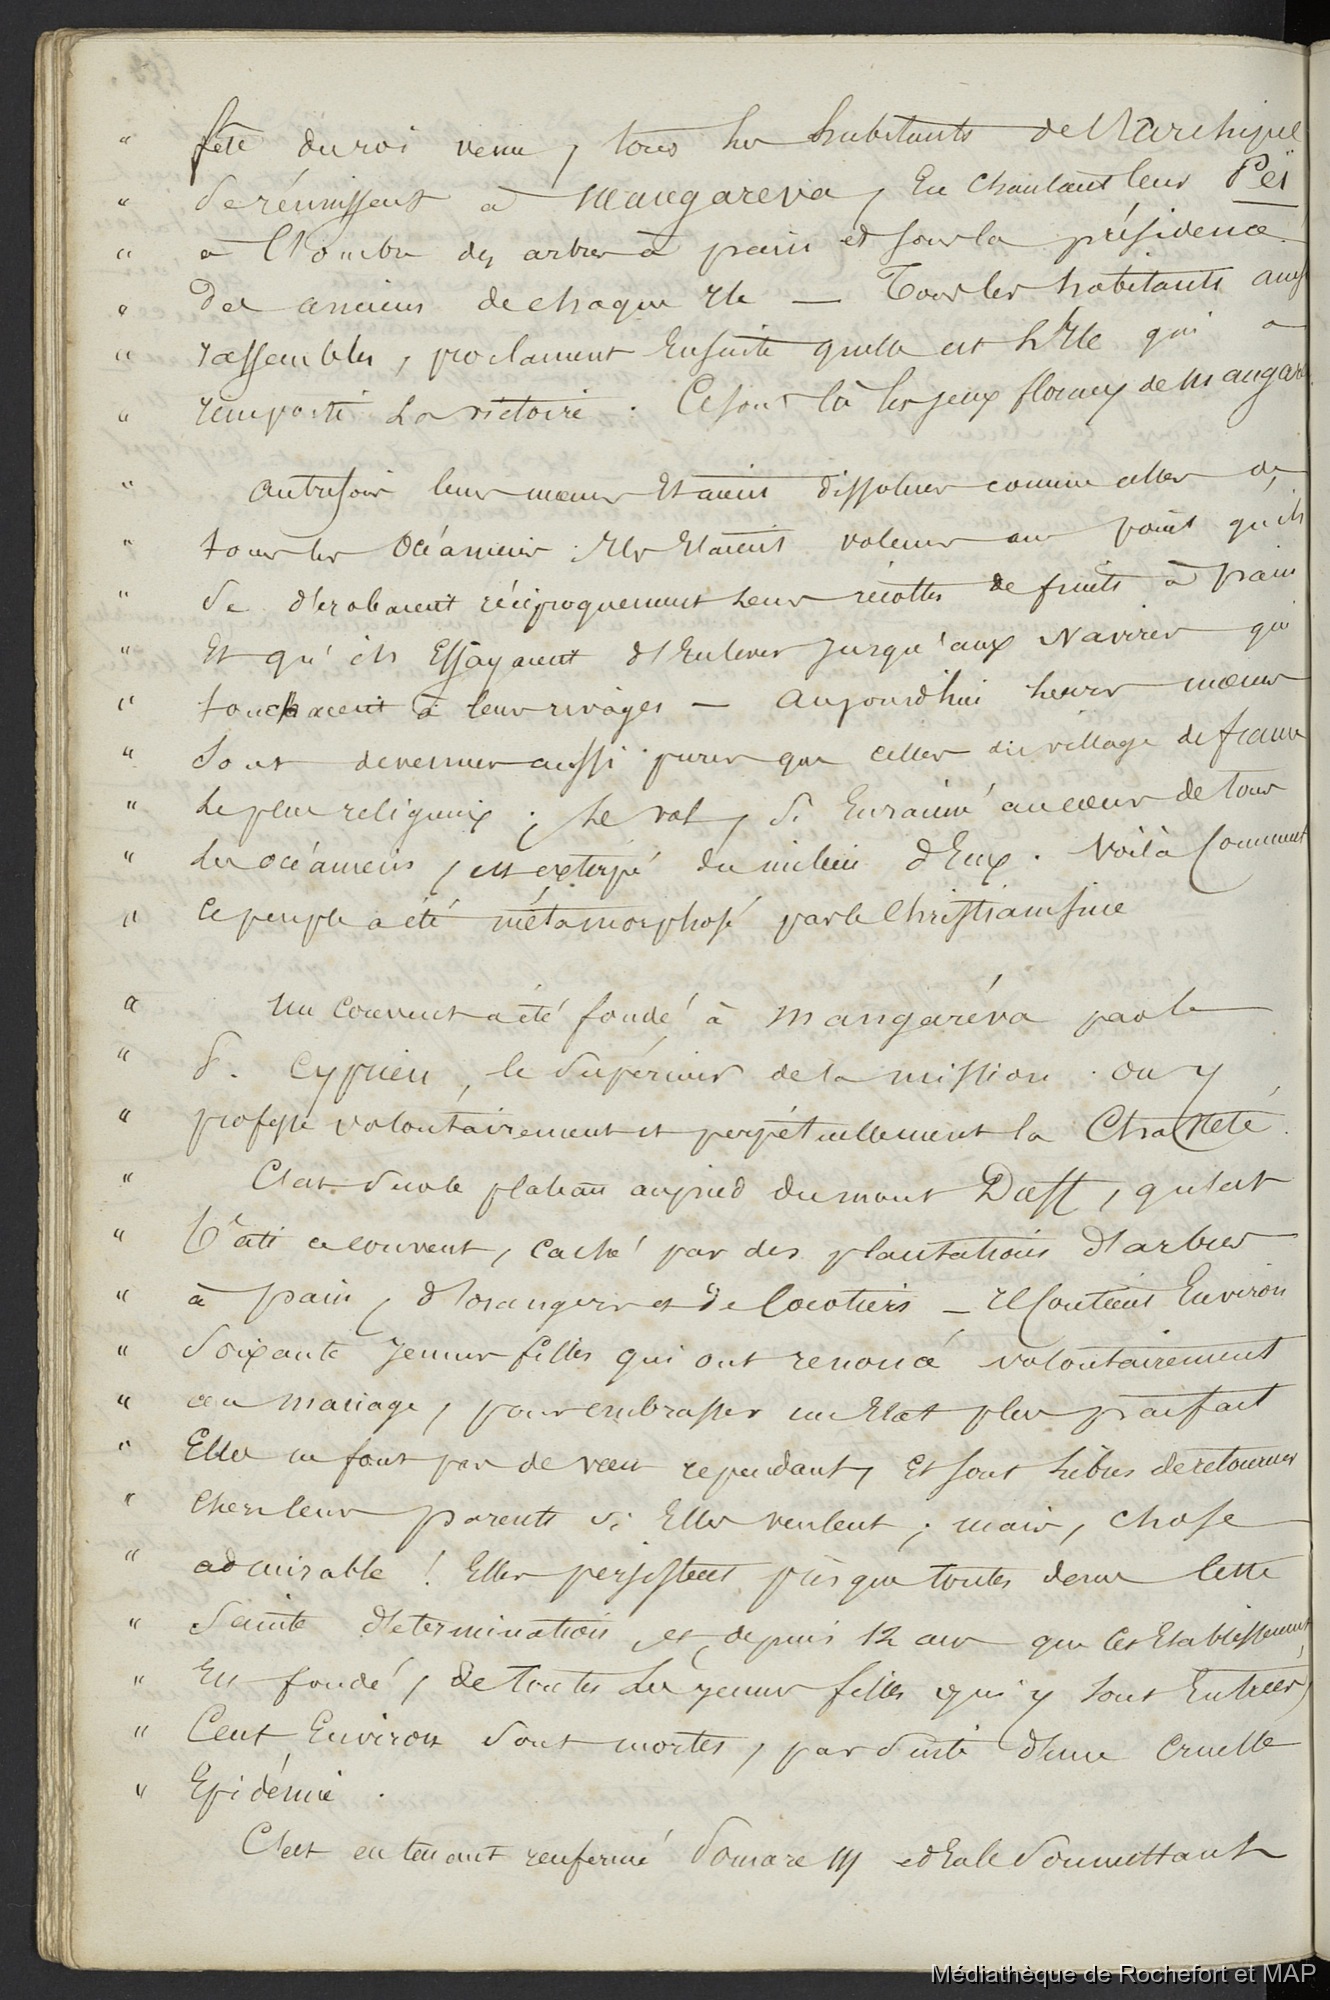 " fête du roi venu, tous les habitants de l'archipel
" se réunissent à Mangareva, en chantant leurs Péi
" a l'ombre des arbres à pain et sous la présidence
" des anciens de chaque Ile — Tous les habitants ainsi
" rassemblés, proclament Ensuite quelle est l'Ile qui a
" remporté la victoire. Ce sont là les jeux floraux de Mangare
" autrefois leurs mœurs Etaient dissolues comme celles de
" tous les Océaniens. Ils Etaient voleurs au point qu'ils
" se dérobaient réciproquement leurs récoltes de fruits à pain
" Et qu'ils Essayaient d'Enlever jusqu'aux Navires qui
" touchaient à leurs rivages — aujourd'hui leurs mœurs
" sont devenues aussi pures que celles du village de france
" le plus religieux ; le vol, si Enraciné au cœur de tous
" les océaniens, est extirpé du milieu d'Eux. Voilà Comment
" ce peuple a été métamorphosé par le Christianisme
" Un couvent a été fondé à Mangaréva par le
" P. Cyprien, le supérieur de la mission. on y
" professe volontairement et perpétuellement la Chasteté.
" C'est sur le plateau au pied du mont Duff, qu'est
" bâti ce couvent, caché par des plantations d'arbres
" à pain, d'orangers et de Cocotiers — Il Contient Environ
" Soixante Jeunes filles qui ont renoncé volontairement
" au mariage, pour embrasser un Etat plus parfait
" Elles ne font pas de vœu cependant, et sont libres de retourner
" chez leurs parents si Elles veulent ; mais, chose
" admirable ! Elles persistent presque toutes dans cette
" sainte détermination, et, depuis 12 ans que cet Etablissement
" Est fondé, de toutes les jeunes filles qui y sont Entrées,
" Cent Environ sont mortes, par suite d'une cruelle
" Epidémie.
C'est en tenant renfermé Pomare III et En le soumettant
Médiathèque de Rochefort et MAP